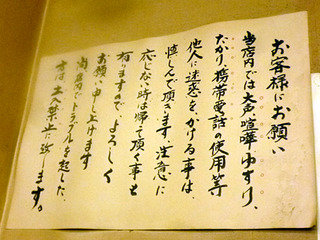 お客様にお願い
当店内では大声、喧嘩、ゆすり、
たかり、携帯電話の使用等
他人に迷惑をかける事は、
慎しんで頂きます。注意に
応じない時は帰って頂く事も
有りますので、よろしく
お願い申し上げます
当店内でトラブルを起した
方は出入禁止に致します。